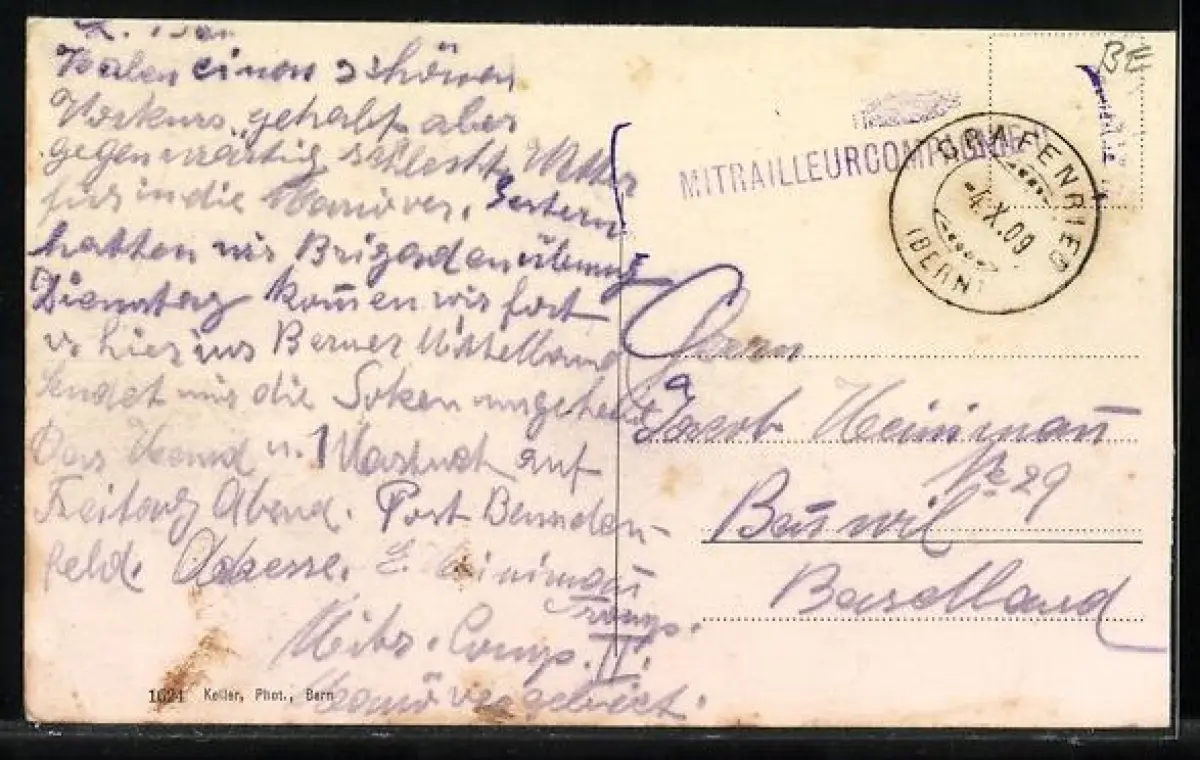 Haben einen schönen
Vorkurs, gehabt aber
gegenwärtig schlecht Wetter
für in die Manöver. Gestern
hatten wir Brigadenübung
Dienstag komen wir fort
v hier ins Berner Mittelland
Sendet mir die Soken umgehend
Das Hemd u. 1 Nastuch auf
Freitag Abend. Post Benden-
feld. Adresse. E. Heiniman
Tromp.
Mitr. Comp. II.
Manövergebiet.
1624 Keller, Phot., Bern
BE
MITRAILLEURCOMPAGNIE II
GRAFENRIED
-4.X.09
(BERN)
Herrn
Jacob Heiniman
No 29
Benwil
Baselland